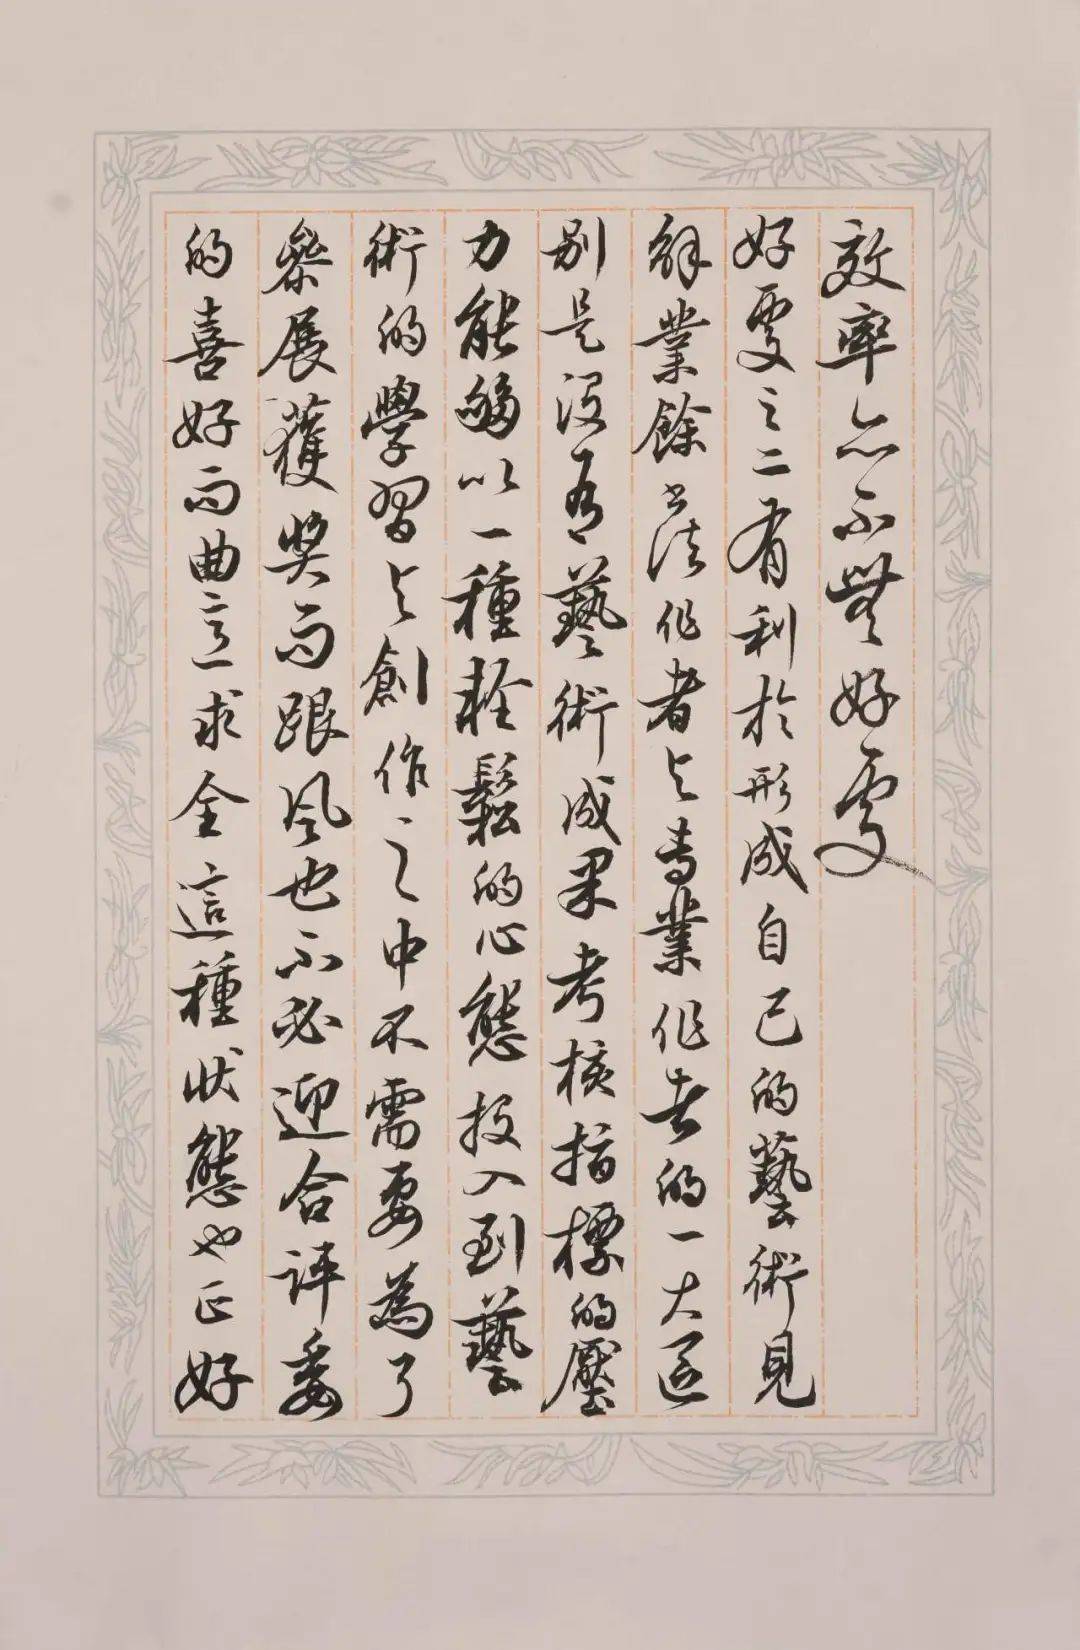 效率亦不無好處
好處之二有利於形成自己的藝術見
解業餘书法作者与專業作者的一大区
别是没有藝術成果考核指標的壓
力能够以一種輕鬆的心態投入到藝
術的學習与創作之中不需要為了
參展獲奖而跟风也不必迎合评委
的喜好而曲意求全這種状態也正好